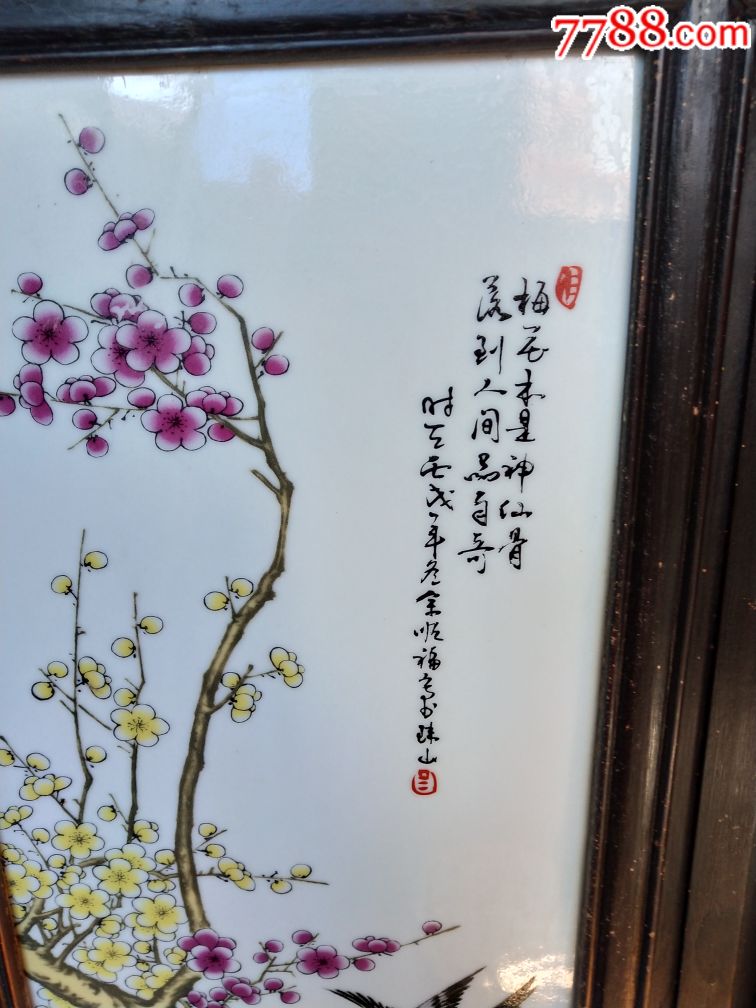 7788.com
梅花本是神仙骨
落到人间品自奇
时在丙戌年冬余顺福写于珠山